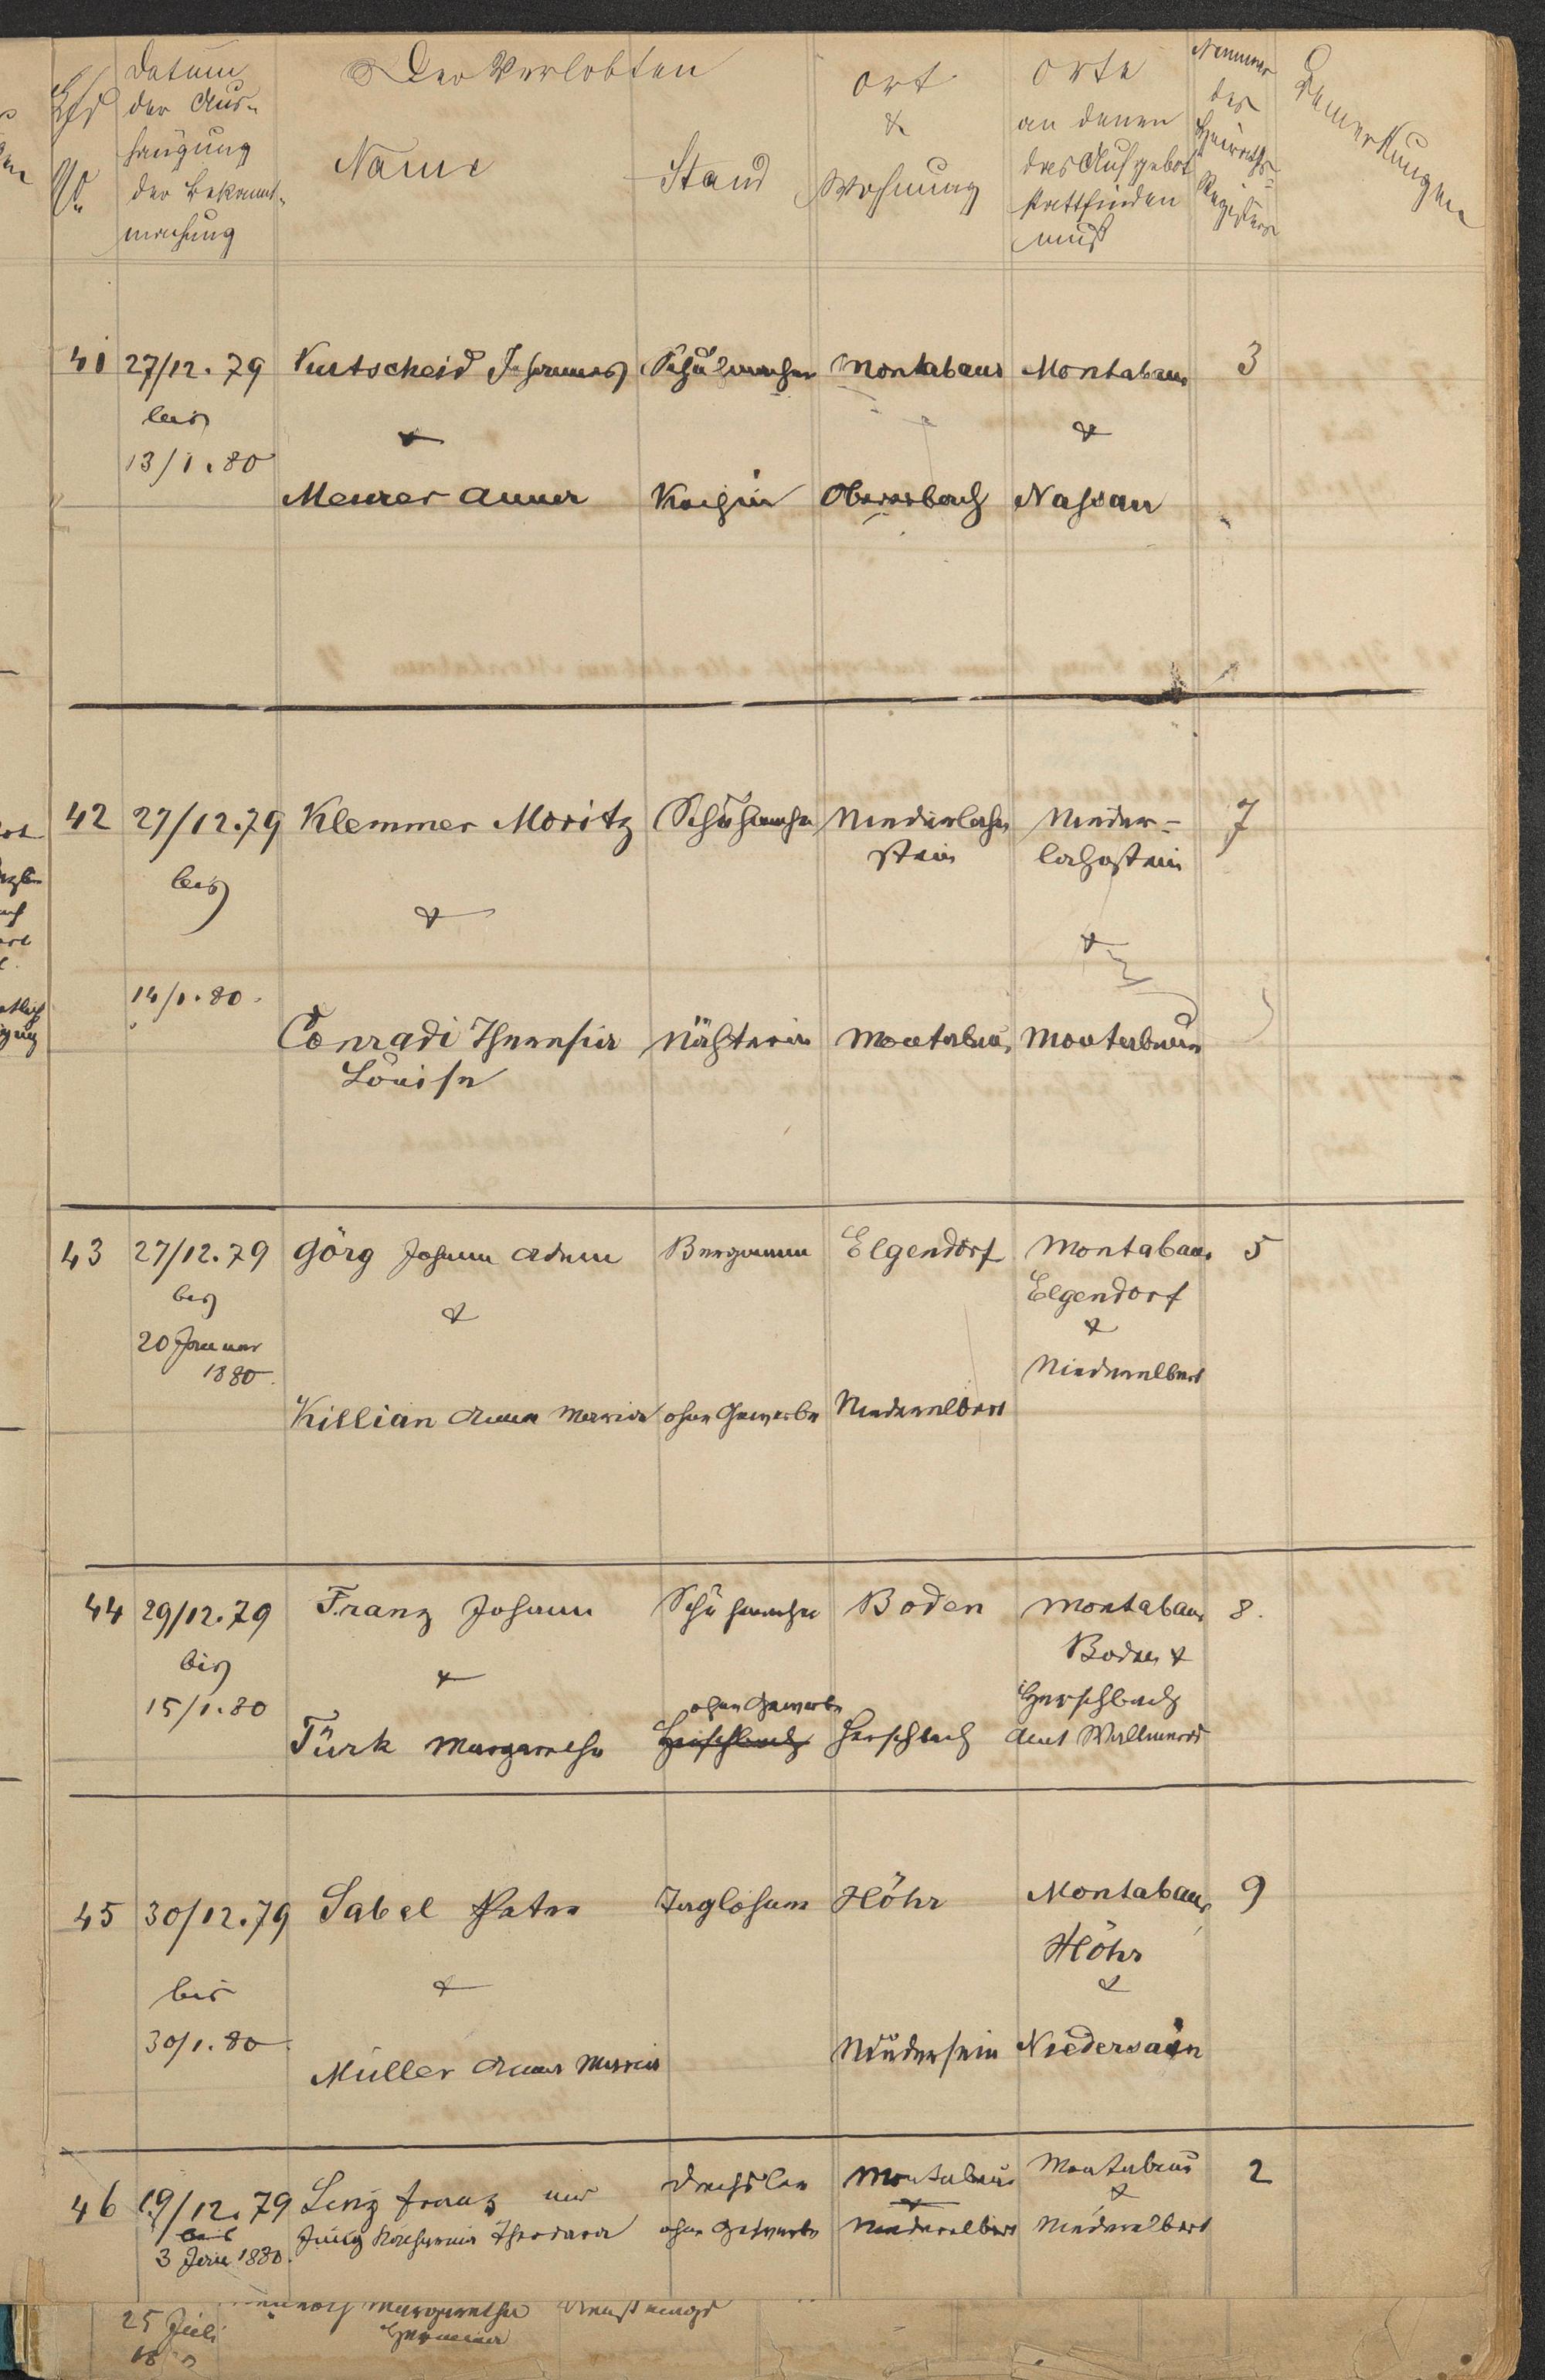 Lfd No.
Datum der Aus- hängung der Bekannt- machung
Der Verlobten
Name
Stand
Ort & Wohnung
Orte an denen das Aufgebot stattfinden muß
Nummer des Heiraths- Registers
Bemerkungen
41 27/12.79 Kutscheid Johannes Schuhmacher Montabaur Montabaur 3
bis & &
13/1.80
Meurer Anna Köchin Oberersbach Nassau
42 27/12.79 Klemmer Moritz Schuhmacher Niederlahn Nieder- 7
stein lahnstein
bis & &
14/1.80.
Conradi Theresia Nähterin Montabaur Montabaur
Louise
43 27/12.79 Görg Johann Adam Bergmann Elgendorf Montabaur 5
bis & Elgendorf
20 Januar &
1880. Niederelbert
Killian Anna Maria ohne Gewerbe Niederelbert
44 29/12.79 Franz Johann Schuhmacher Boden Montabaur 8.
bis & Boden &
15/1.80 ohne Gewerbe Herschbach
Türk Margaretha Herschbach Herschbach Amt Wallmerod
45 30/12.79 Sabel Peter Taglöhner Höhr Montabaur 9
Höhr
bis & &
30/1.80
Müller Anna Maria Niedersain Niedersain
46 19/12.79 Linz Franz und Drechsler Montabaur Montabaur 2
bis & &
3 Jan 1880. Jung Katharina Theodora ohne Gewerbe Niederelbert Niederelbert
Margaretha Dienstmagd
25 Juli